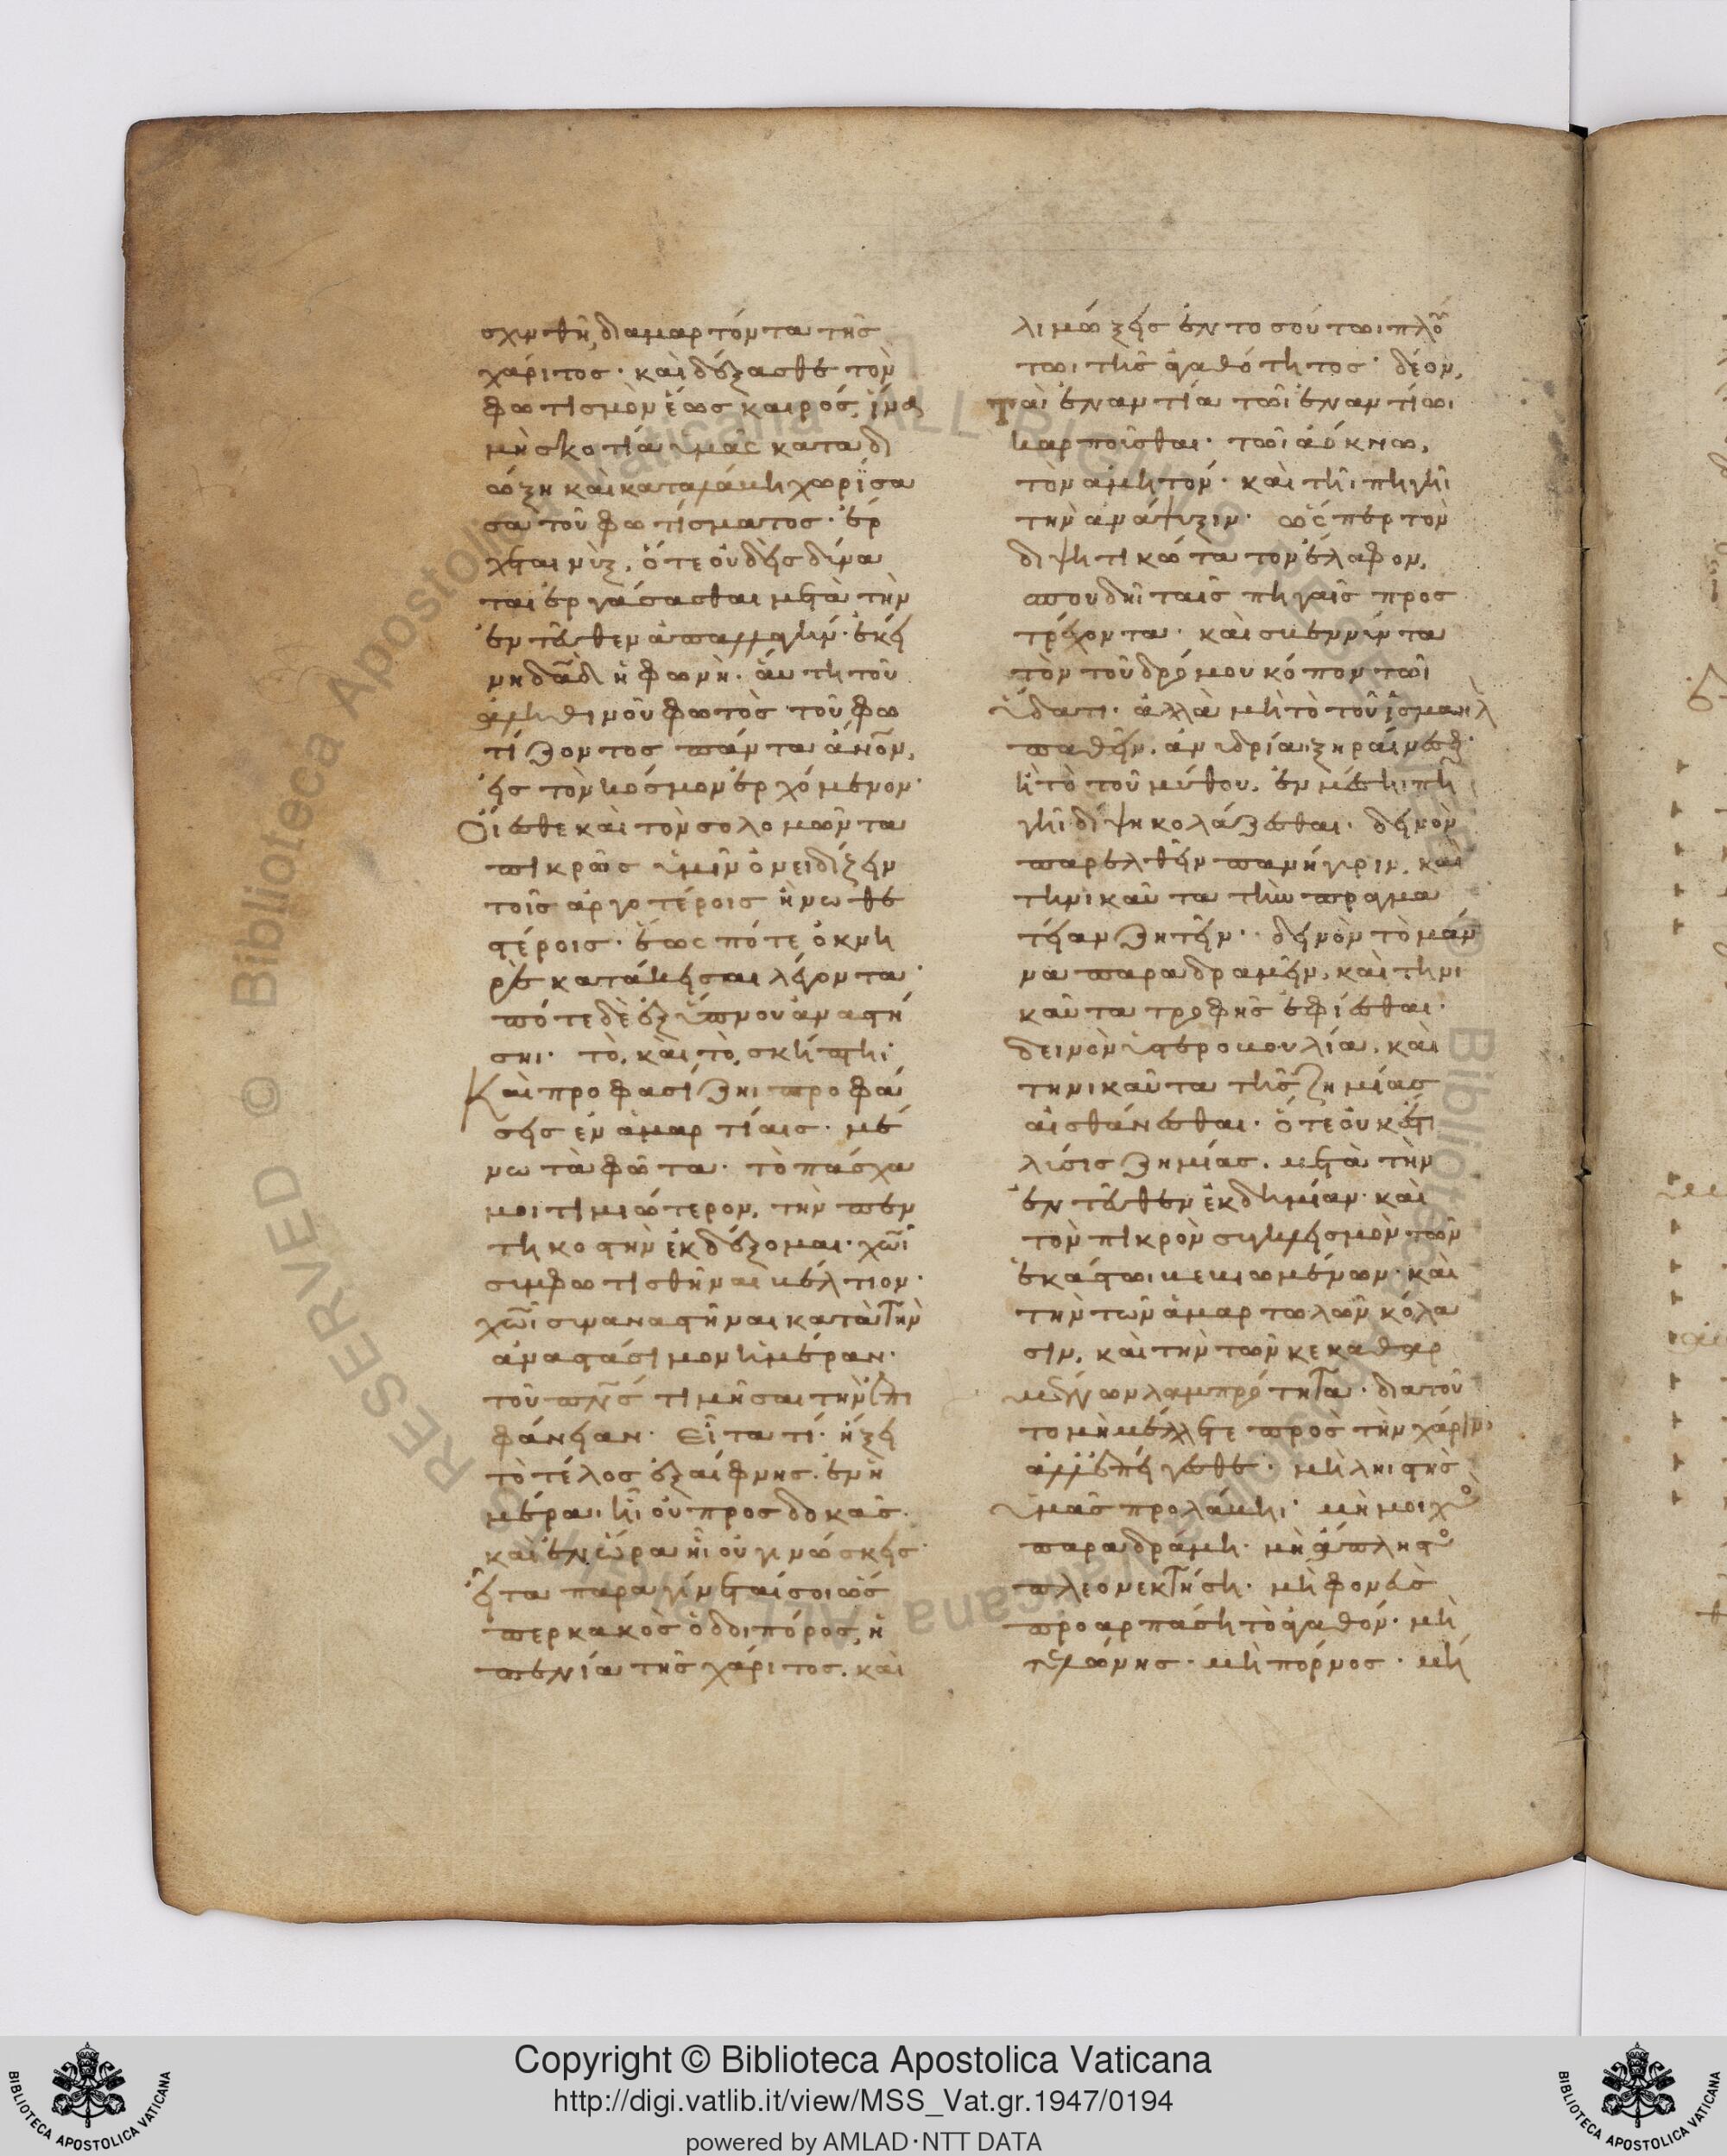 σχυνθῆι διαμαρτόντα τῆς
χάριτος· καὶ δέξασθε τὸν
φωτισμὸν ἕως καιρός, ἵνα
μὴ σκοτία ὑμᾶς καταδι
ώξη καὶ καταλάβηι χωρίσα
σα τοῦ φωτίσματος· ἔρ
χεται νὺξ, ὅτε οὐδεὶς δύνα
ται ἐργάσασθαι μετὰ τὴν
ἐντεῦθεν ἀπαλλαγήν· ἐκεί
νη δᾶδ ἡ φωνὴ· αὕτη τοῦ
ἀληθινοῦ φωτὸς τοῦ φω
τίζοντος πάντα ἀνον,
εἰς τὸν κόσμον ἐρχόμενον·
Οἴεσθε καὶ τὸν σολομῶντα
πικρῶς ὑμῖν ὀνειδίζειν
τοῖς ἀργοτέροις ἢ νωθε
στέροις· ἕως πότε ὀκνη
ρὲ κατάκεισαι λέγοντα·
πότε δὲ ἐξ ὕπνου ἀναστή
σηι· τὸ, καὶ τὸ, σκήπτηι·
Καὶ προφασίζηι προφά
σεις ἐν ἁμαρτίαις· μέ
νω τὰ φῶτα· τὸ πάσχα
μοι τιμιώτερον, τὴν πεν
τηκοστὴν ἐκδέξομαι· χῶι
συμφωτισθῆναι βέλτιον·
χῶι συναναστῆναι κατὰ τὴν
ἀναστάσιμον ἡμέραν·
τοῦ πνς τιμῆσαι τὴν ἐπι
φάνειαν· Εἶτα τί· ἥξει
τὸ τέλος ἐξαίφνης· ἐν ἡ
μέραι ἧι οὐ προσδοκᾶς·
καὶ ἐν ὥρα ἧι οὐ γινώσκεις·
εἶτα παραγίνεταί σοι ὥσ
περ κακὸς ὁδοιπόρος, ἡ
πενία τῆς χάριτος, καὶ
λιμώξεις ἐν τοσούτωι πλού
τωι τῆς ἀγαθότητος· δέον,
τἀναντία τῶι ἐναντίωι
καρποῦσθαι· τῶι ἀόκνω,
τὸν ἀμητόν· καὶ τῆι πηγῆι
τὴν ἀνάψυξιν· ὥσπερ τὸν
διψητικώτατον ἔλαφον,
σπουδῆι ταῖς πηγαῖς προσ
τρέχοντα· καὶ σβεννύντα
τὸν τοῦ δρόμου κόπον τῶι
ὕδατι· ἀλλὰ μὴ τὸ τοῦ ἰσμαὴλ
παθεῖν, ἀνυδρίαι ξηραίνεσθ·
ἢ τὸ τοῦ μύθου, ἐν μέσηι πη
γῆι δίψη κολάζεσθαι· δεινὸν
παρελθεῖν πανήγυριν, καὶ
τηνικαῦτα τὴν πραγμα
τείαν ζητεῖν· δεινὸν τὸ μάν
να παραδραμεῖν, καὶ τηνι
καῦτα τροφῆς ἐφίεσθαι·
δεινὸν ὑστεροβουλία, καὶ
τηνικαῦτα τῆς ζημίας
αἰσθάνεσθαι· ὅτε οὐκ ἔστι
λύσις ζημίας. μετὰ τὴν
ἐντεῦθεν ἐκδημίαν· καὶ
τὸν πικρὸν συγκλεισμὸν τῶν
ἑκάστωι βεβιωμένων· καὶ
τὴν τῶν ἁμαρτωλῶν κόλα
σιν, καὶ τὴν τῶν κεκαθαρ
μένων λαμπρότητα· διατοῦ
το μὴ μέλλετε πρὸς τὴν χάριν,
ἀλλ' ἐπείγεσθε· μὴ ληιστὴς
ὑμᾶς προλάβηι· μὴ μοιχὸς
παραδράμηι· μὴ ἄπληστος
πλεονεκτήσηι· μὴ φονεὺς
προαρπάσηι τὸ ἀγαθόν· μὴ
τελώνης· μὴ πόρνος· μή
RESERVED © Biblioteca Apostolica Vaticana ALL RIGHTS RESERVED © Biblioteca Apostolica Vaticana ALL RIGHTS
Copyright © Biblioteca Apostolica Vaticana
http://digi.vatlib.it/view/MSS_Vat.gr.1947/0194
powered by AMLAD·NTT DATA
BIBLIOTECA APOSTOLICA VATICANA
BIBLIOTECA APOSTOLICA VATICANA